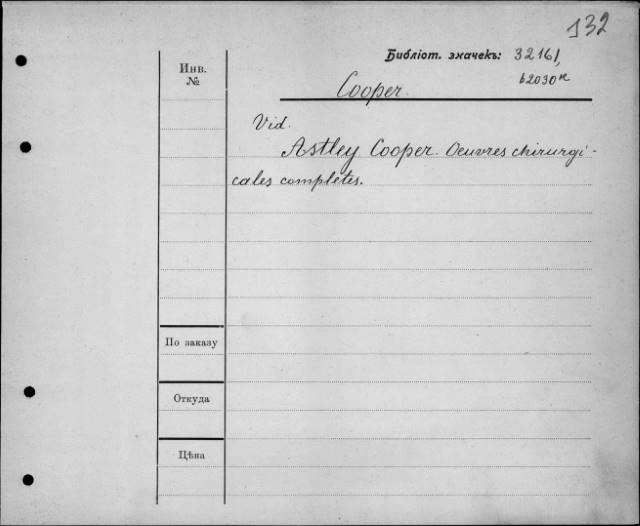 132
Библіот. значекъ: 32161,
b2030к
Инв.
№
Cooper.
Vid.
Astley Cooper. Oeuvres chirurgi-
cales complètes.
По заказу
Откуда
Цѣна